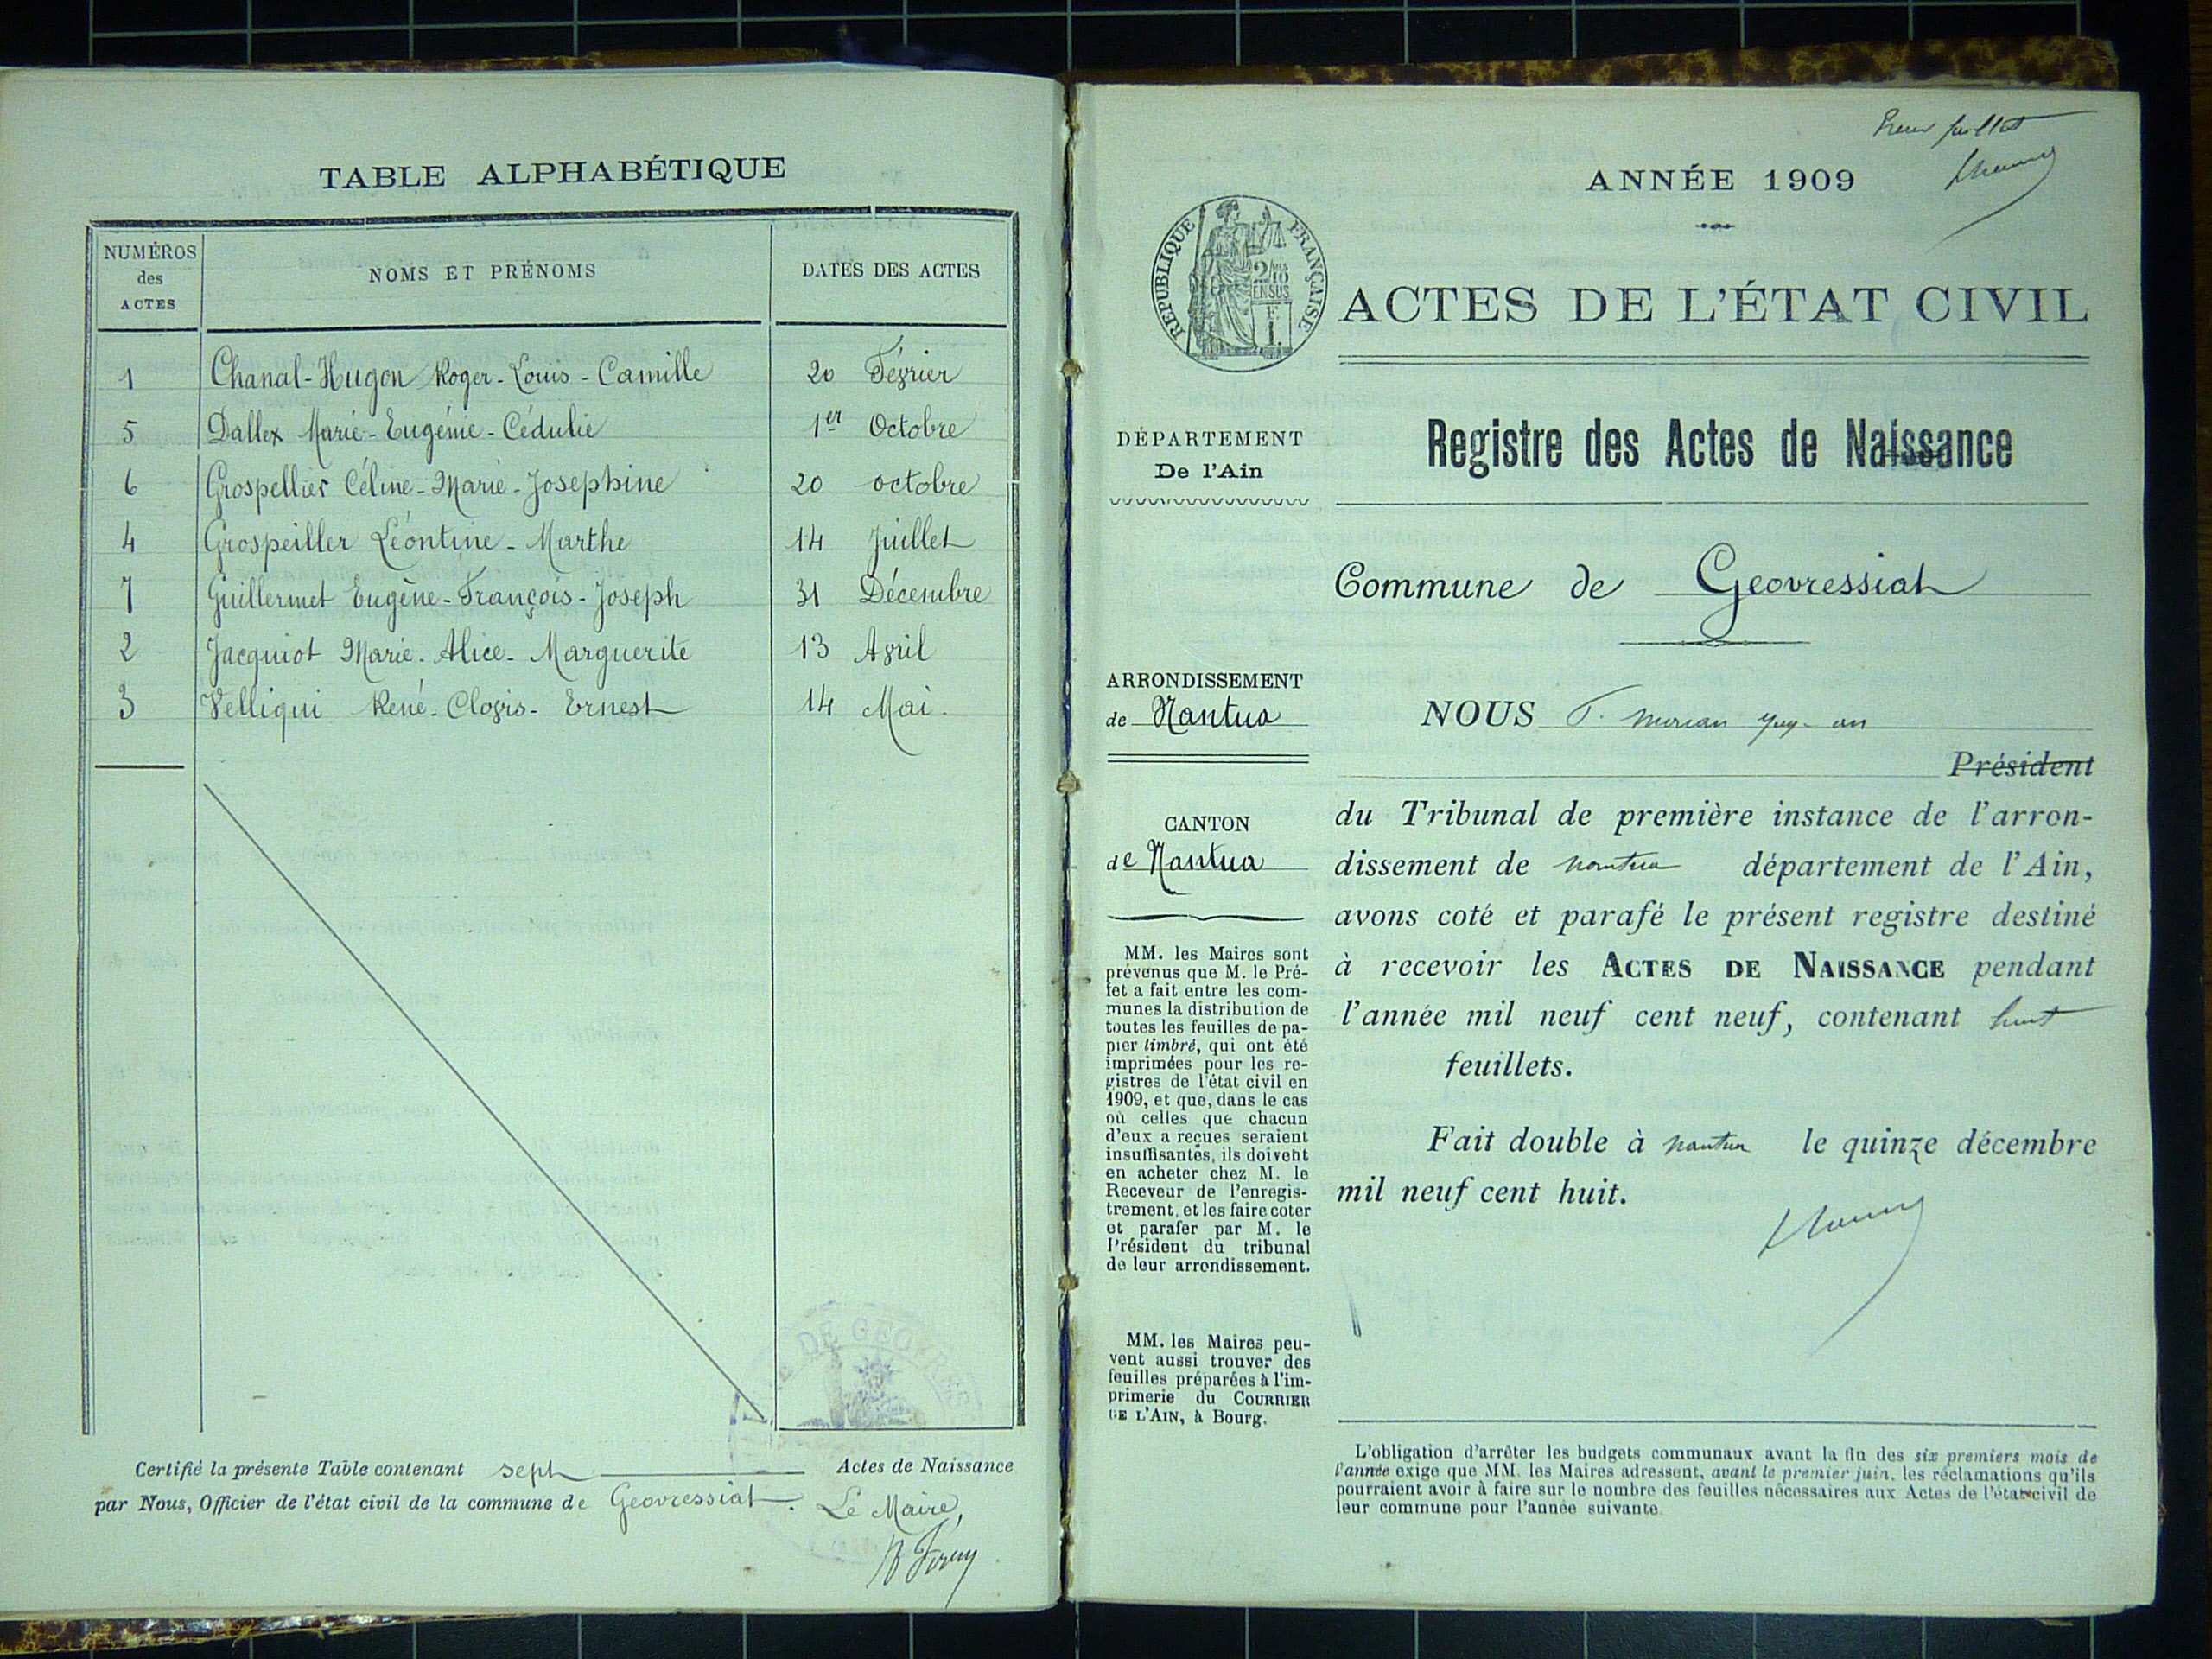 TABLE ALPHABÉTIQUE
NUMÉROS
des
ACTES
NOMS ET PRÉNOMS
DATES DES ACTES
1 Chanal-Hugon Roger-Louis-Camille 20 Février
5 Dallex Marie-Eugénie-Cédulie 1er Octobre
6 Grospellier Céline-Marie-Josephine 20 octobre
4 Grospeiller Léontine-Marthe 14 Juillet
7 Guillermet Eugène-François-Joseph 31 Décembre
2 Jacquiot Marie-Alice-Marguerite 13 Avril
3 Velliqui René-Clovis-Ernest 14 Mai
Certifié la présente Table contenant sept Actes de Naissance
par Nous, Officier de l'état civil de la commune de Geovressiat.
Le Maire,
ANNÉE 1909
RÉPUBLIQUE FRANÇAISE
ACTES DE L'ÉTAT CIVIL
DÉPARTEMENT
De l'Ain
Registre des Actes de Naissance
Commune de Geovressiat
ARRONDISSEMENT
de Nantua
NOUS
Président
CANTON
de Nantua
du Tribunal de première instance de l'arron-
dissement de nantua département de l'Ain,
avons coté et parafé le présent registre destiné
à recevoir les ACTES DE NAISSANCE pendant
l'année mil neuf cent neuf, contenant huit
feuillets.
Fait double à nantua le quinze décembre
mil neuf cent huit.
MM. les Maires sont
prévenus que M. le Pré-
fet a fait entre les com-
munes la distribution de
toutes les feuilles de pa-
pier timbré, qui ont été
imprimées pour les re-
gistres de l'état civil en
1909, et que, dans le cas
où celles que chacun
d'eux a reçues seraient
insuffisantes, ils doivent
en acheter chez M. le
Receveur de l'enregis-
trement, et les faire coter
et parafer par M. le
Président du tribunal
de leur arrondissement.
MM. les Maires peu-
vent aussi trouver des
feuilles préparées à l'im-
primerie du COURRIER
DE L'AIN, à Bourg.
L'obligation d'arrêter les budgets communaux avant la fin des six premiers mois de
l'année exige que MM. les Maires adressent, avant le premier juin, les réclamations qu'ils
pourraient avoir à faire sur le nombre des feuilles nécessaires aux Actes de l'état civil de
leur commune pour l'année suivante.